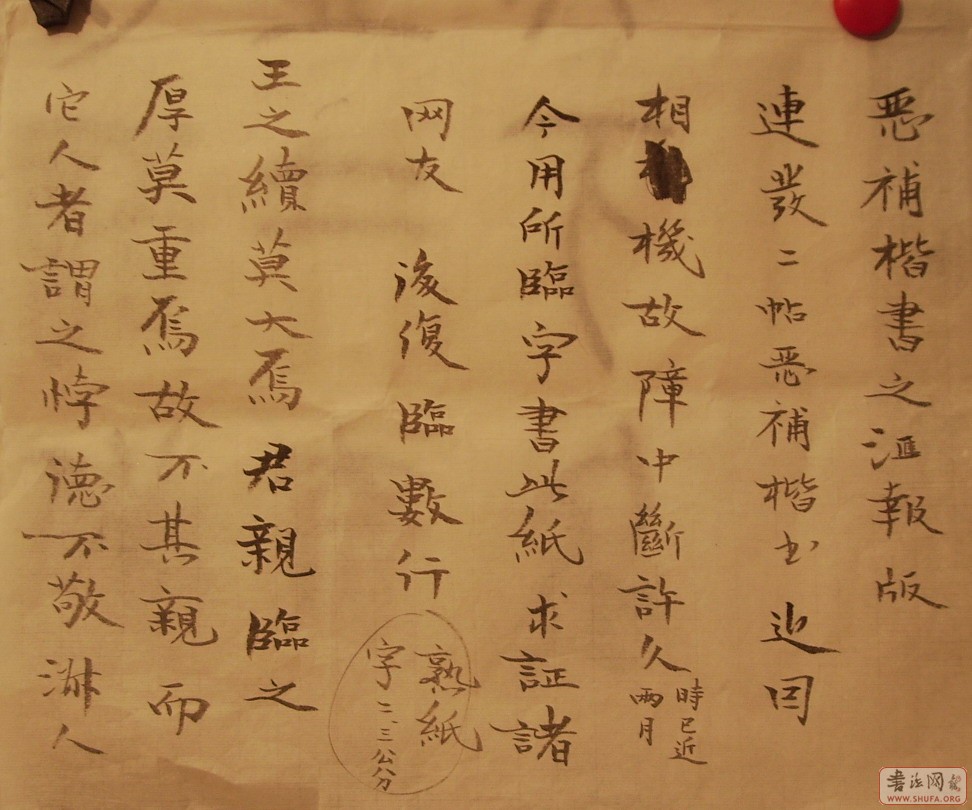 惡補楷書之滙報版
連發二帖惡補楷书近因
相機故障中斷許久時已近兩月
今用所臨字書此紙求証諸
网友 後復臨數行
熟紙
字二、三公分
王之續莫大焉君親臨之
厚莫重焉故不其親而
它人者謂之悖德不敬 人
書法网
WWW.SHUFA.ORG